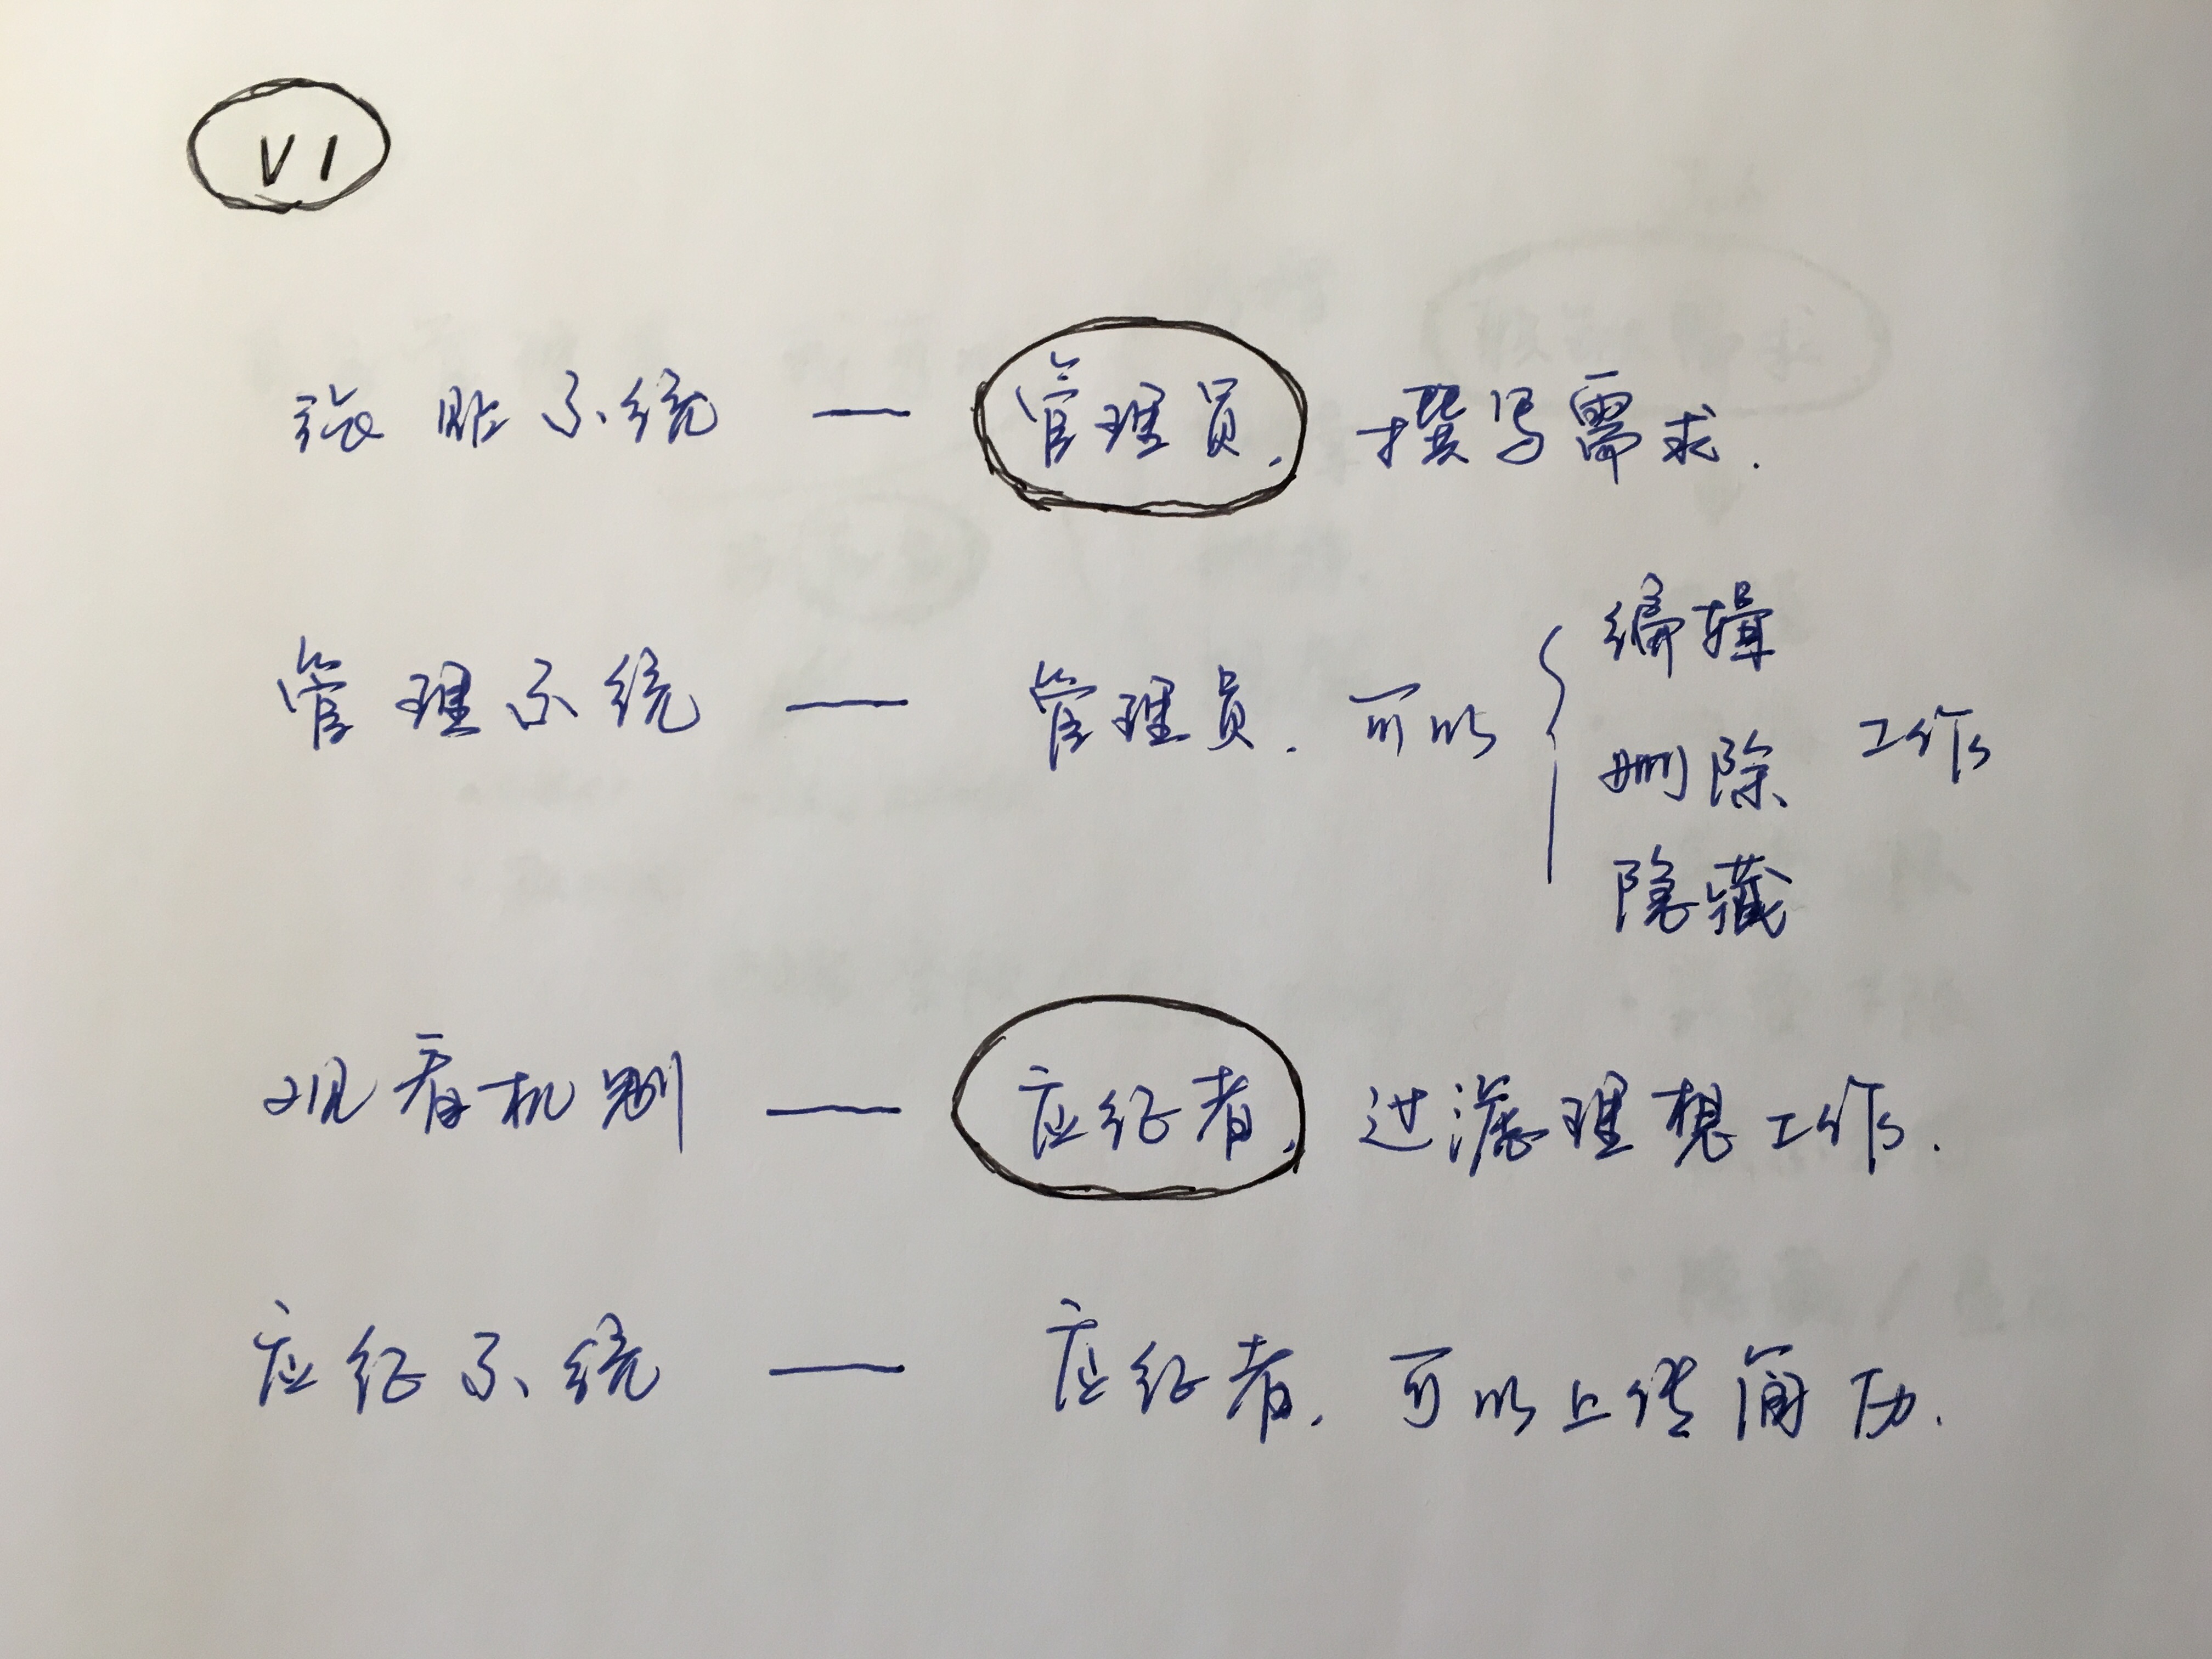 V1
张贴系统 — 管理员. 撰写需求.
编辑
管理系统 — 管理员. 可以 { 删除 工作
隐藏
观看机制 — 应征者. 过滤理想工作.
应征系统 — 应征者. 可以上传简历.